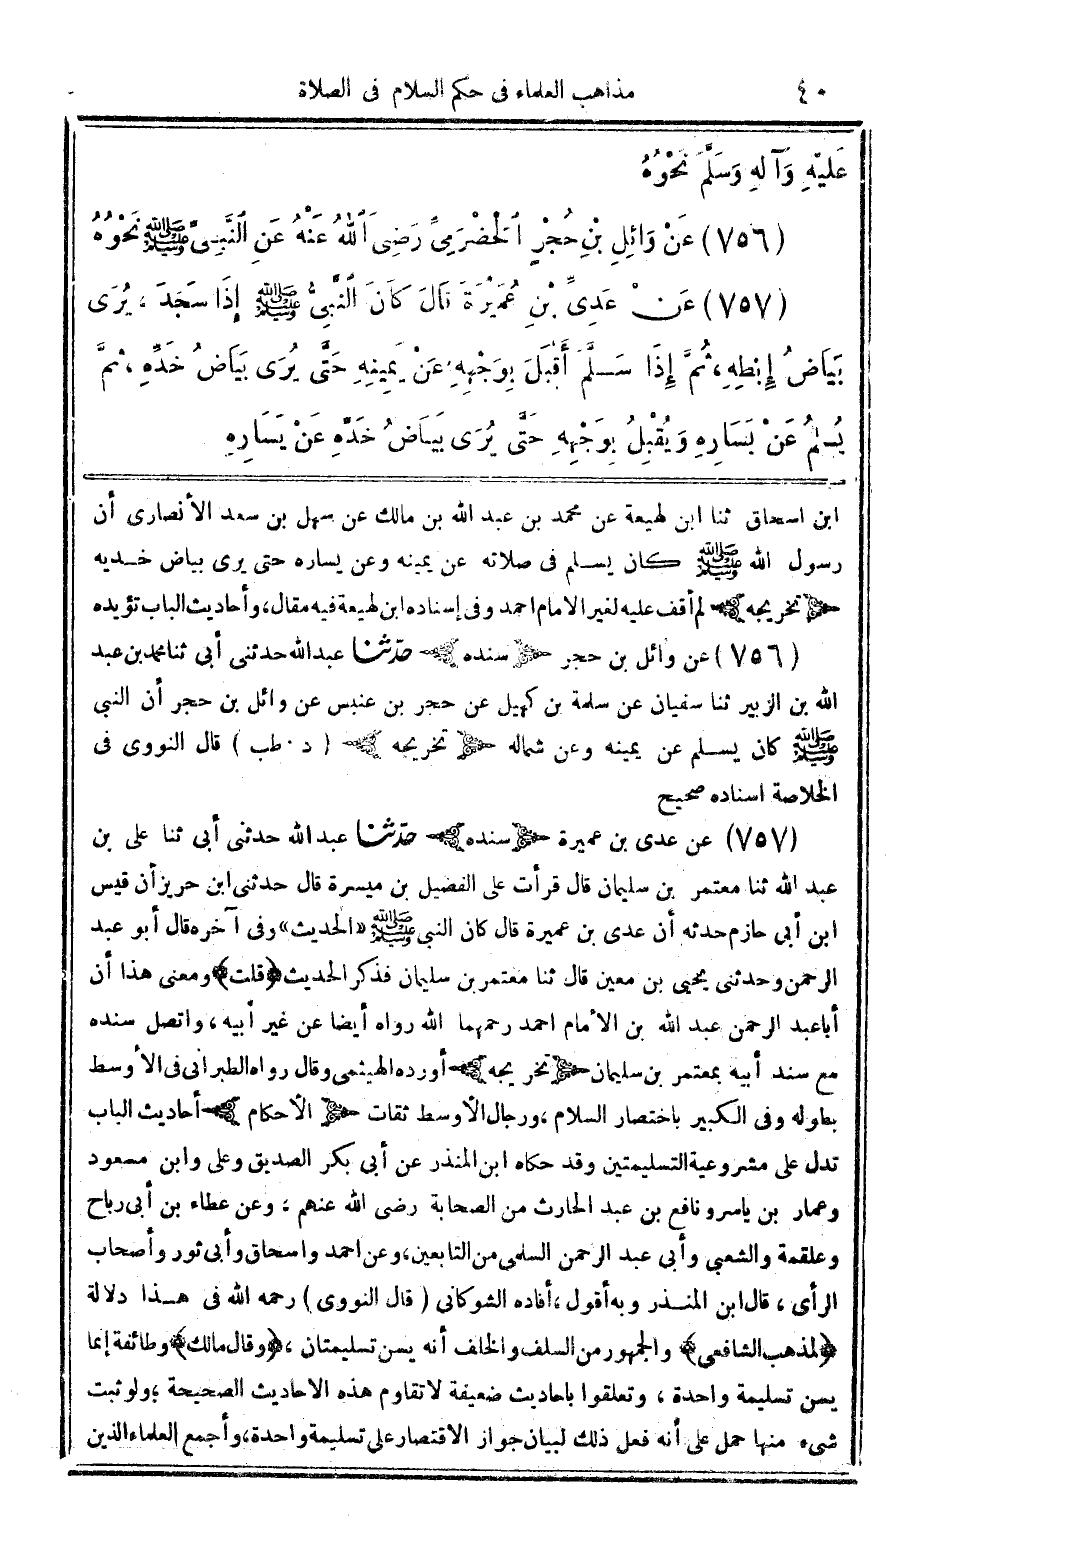 ٤٠ مذاهب العلماء فى حكم السلام فى الصلاة
عَلَيْهِ وَآلِهِ وَسَلَّمَ نَحْوُهُ
(٧٥٦) عَنْ وَائِلِ بْنِ حُجْرٍ الْحَضْرَمِيِّ رَضِيَ اللهُ عَنْهُ عَنِ النَّبِيِّ ﷺ نَحْوُهُ
(٧٥٧) عَنْ عَدِيِّ بْنِ عُمَيْرَةَ قَالَ كَانَ النَّبِيُّ ﷺ إِذَا سَجَدَ ، يُرَى
بَيَاضُ إِبْطِهِ ، ثُمَّ إِذَا سَلَّمَ أَقْبَلَ بِوَجْهِهِ عَنْ يَمِينِهِ حَتَّى يُرَى بَيَاضُ خَدِّهِ ، ثُمَّ
يُسَلِّمُ عَنْ يَسَارِهِ وَيُقْبِلُ بِوَجْهِهِ حَتَّى يُرَى بَيَاضُ خَدِّهِ عَنْ يَسَارِهِ
ابن اسحاق ثنا ابن لهيعة عن محمد بن عبد الله بن مالك عن سهل بن سعد الأنصارى أن
رسول الله ﷺ كان يسلم فى صلاته عن يمينه وعن يساره حتى يرى بياض خديه
﴿تخريجه﴾ لم أقف عليه لغير الامام احمد وفى إسناده ابن لهيعة فيه مقال، وأحاديث الباب تؤيده
(٧٥٦) عن وائل بن حجر ﴿سنده﴾ حدّثنا عبدالله حدثنى أبي ثنا محمد بن عبد
الله بن الزبير ثنا سفيان عن سلمة بن كهيل عن حجر بن عنبس عن وائل بن حجر أن النبي
ﷺ كان يسلم عن يمينه وعن شماله ﴿تخريجه﴾ ( د . طب ) قال النووى فى
الخلاصة اسناده صحيح
(٧٥٧) عن عدى بن عميرة ﴿سنده﴾ حدّثنا عبد الله حدثنى أبي ثنا على بن
عبد الله ثنا معتمر بن سليمان قال قرأت على الفضيل بن ميسرة قال حدثنى ابن حريز أن قيس
ابن أبي حازم حدثه أن عدى بن عميرة قال كان النبي ﷺ «الحديث» وفى آخره قال أبو عبد
الرحمن وحدثنى يحيى بن معين قال ثنا معتمر بن سليمان فذكر الحديث ﴿قلت﴾ ومعنى هذا أن
أباعبد الرحمن عبد الله بن الأمام احمد رحمهما الله رواه أيضا عن غير أبيه ، واتصل سنده
مع سند أبيه بمعتمر بن سليمان ﴿تخريجه﴾ أورده الهيثمى وقال رواه الطبرانى فى الأوسط
بطوله وفى الكبير باختصار السلام ، ورجال الأوسط ثقات ﴿الأحكام﴾ أحاديث الباب
تدل على مشروعية التسليمتين وقد حكاه ابن المنذر عن أبي بكر الصديق وعلى وابن مسعود
وعمار بن ياسر ونافع بن عبد الحارث من الصحابة رضى الله عنهم ، وعن عطاء بن أبى رباح
وعلقمة والشعبي وأبي عبد الرحمن السلمى من التابعين، وعن احمد واسحاق وأبى ثور وأصحاب
الرأى ، قال ابن المنذر وبه أقول ، أفاده الشوكانى ( قال النووى ) رحمه الله فى هذا دلالة
﴿لمذهب الشافعي﴾ والجمهور من السلف والخلف أنه يسن تسليمتان ، ﴿وقال مالك﴾ وطائفة إنما
يسن تسليمة واحدة ، وتعلقوا باحاديث ضعيفة لا تقاوم هذه الاحاديث الصحيحة ؛ ولو ثبت
شىء منها حمل على أنه فعل ذلك لبيان جواز الاقتصار على تسليمة واحدة، وأجمع العلماء الذين